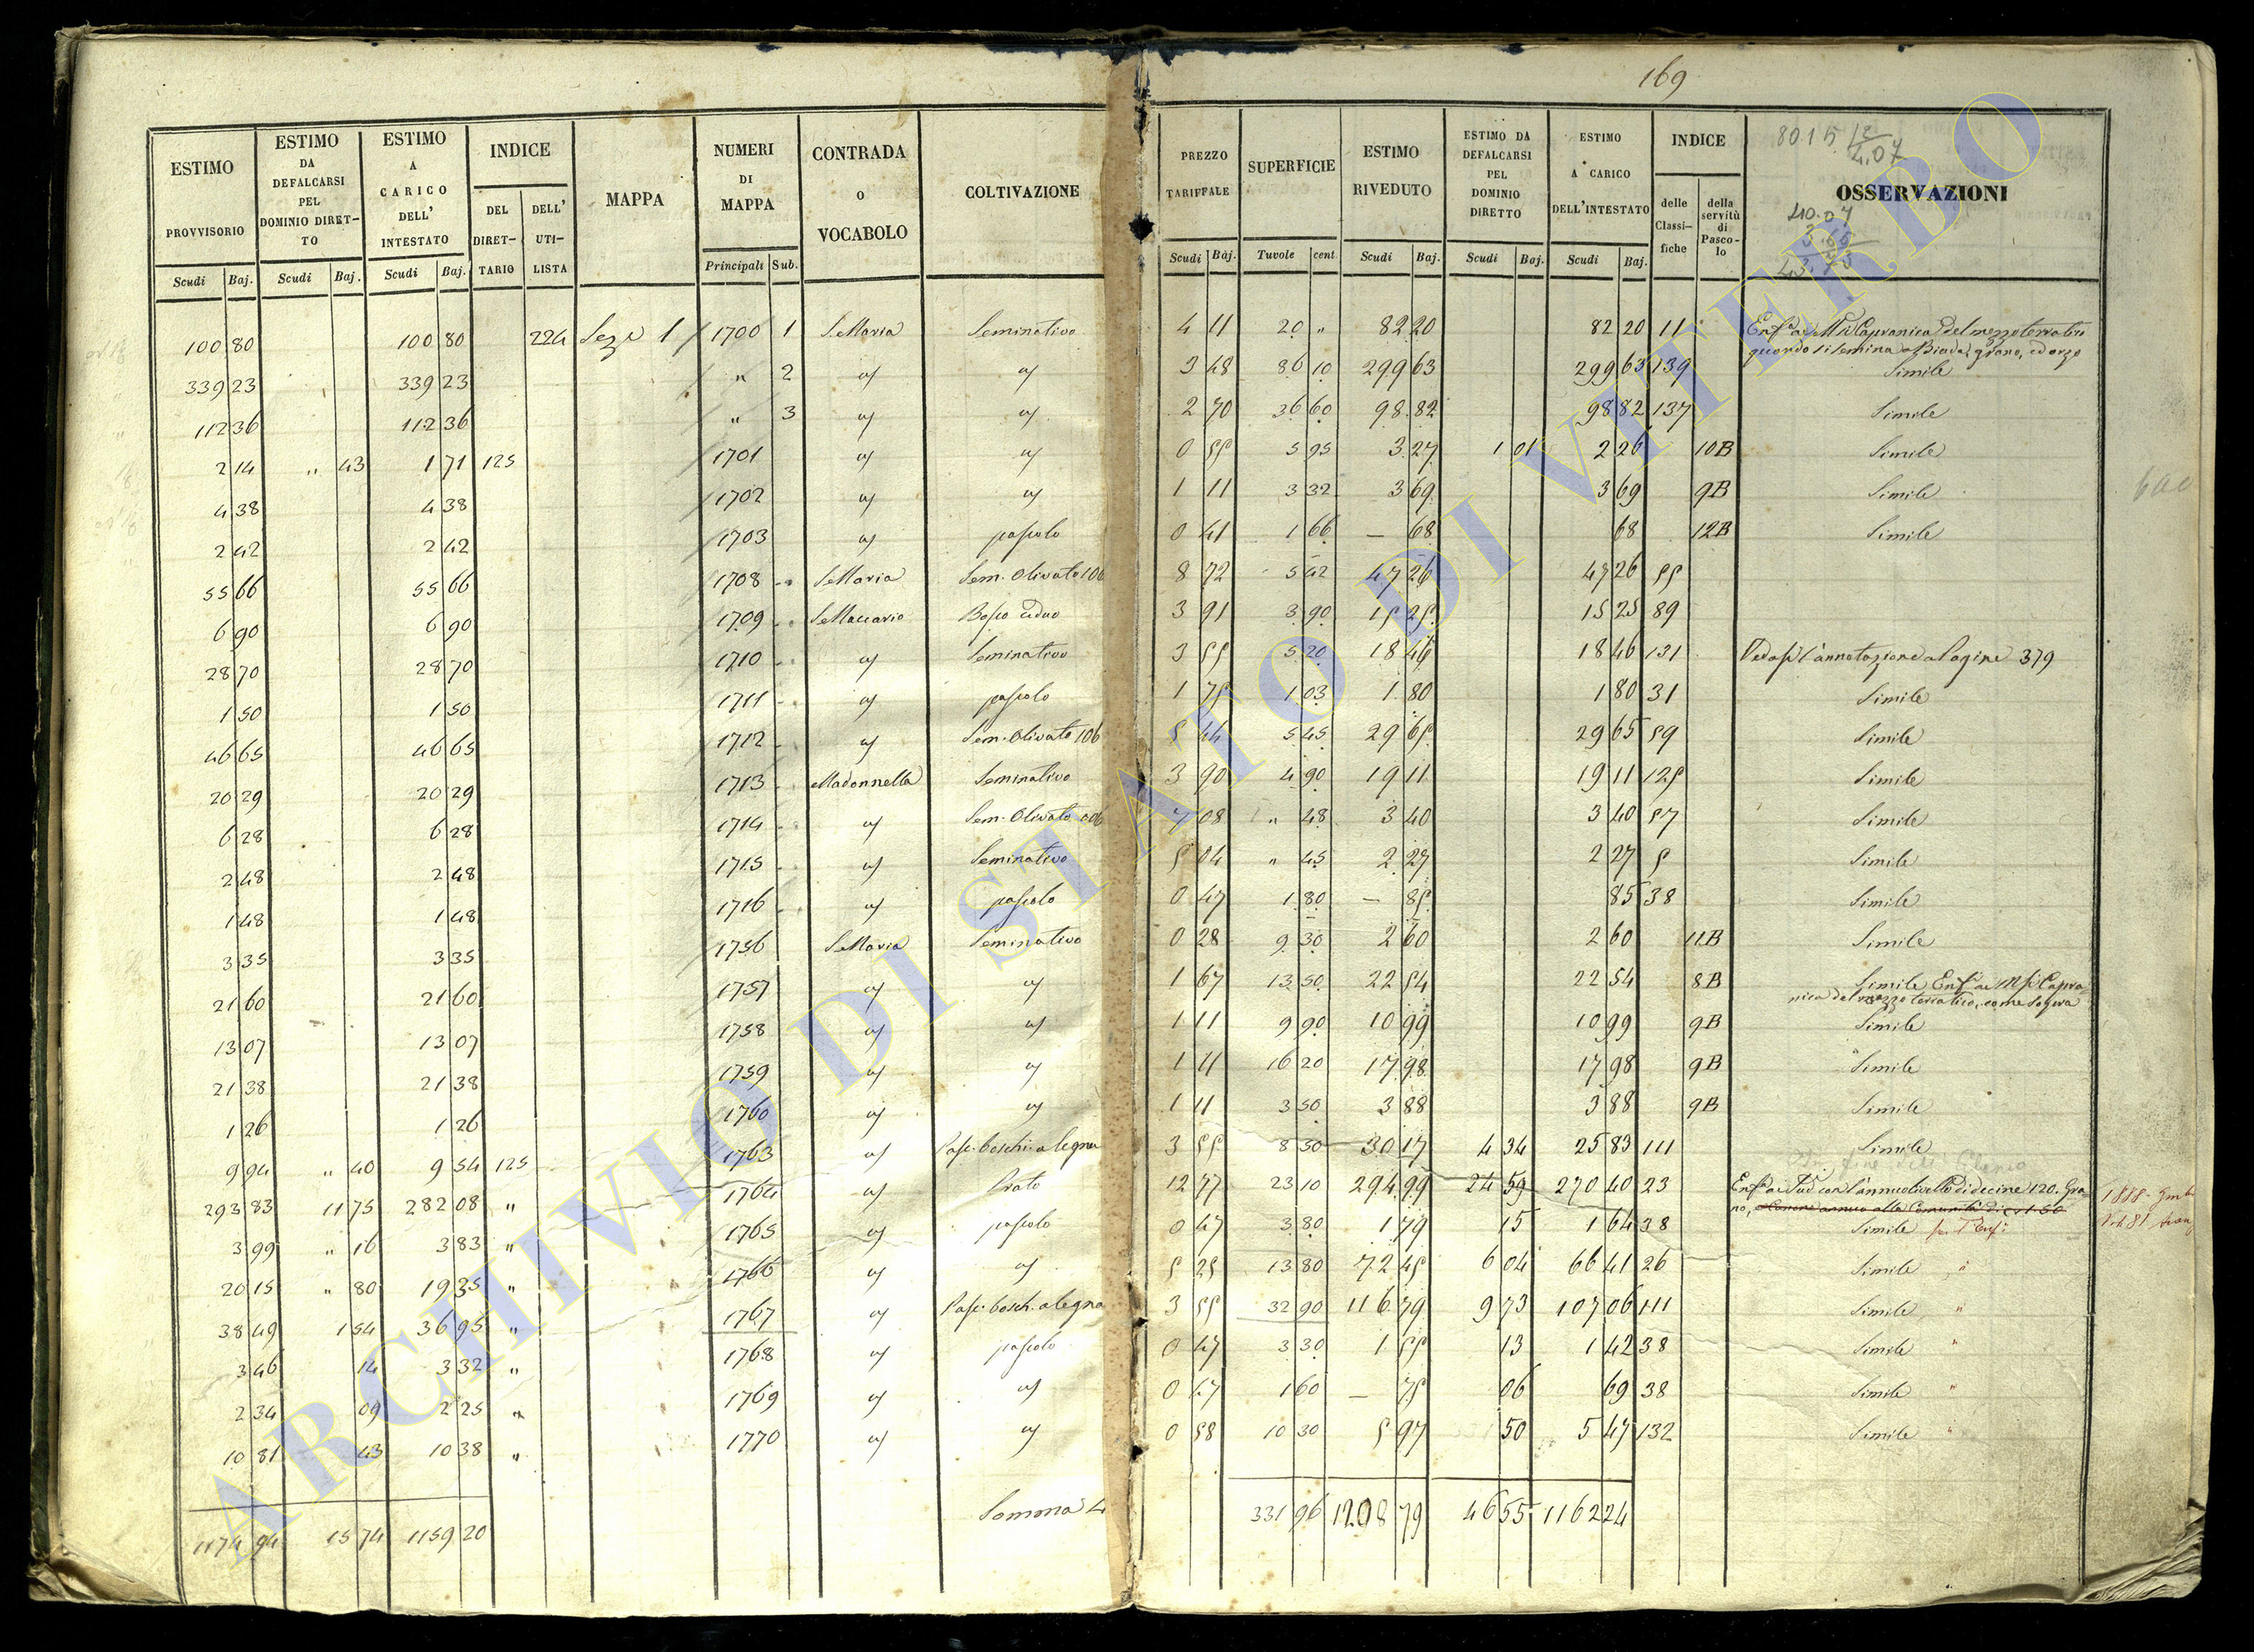 169
ESTIMO PROVVISORIO | ESTIMO DA DEFALCARSI PEL DOMINIO DIRET-TO | ESTIMO A CARICO DELL' INTESTATO | INDICE DEL DIRET-TARIO | DELL' UTI-LISTA | MAPPA | NUMERI DI MAPPA | CONTRADA O VOCABOLO | COLTIVAZIONE | PREZZO TARIFFALE | SUPERFICIE | ESTIMO RIVEDUTO | ESTIMO DA DEFALCARSI PEL DOMINIO DIRETTO | ESTIMO A CARICO DELL'INTESTATO | INDICE delle Classi-fiche | della servitù di Pasco-lo | OSSERVAZIONI
Scudi Baj. | Scudi Baj. | Scudi Baj. | Principali Sub. | Scudi Baj. | Tavole cent | Scudi Baj. | Scudi Baj. | Scudi Baj.
100 80 | 100 80 | 224 | Sez. 1 | 1700 1 | S. Maria | Seminativo | 4 11 | 20 " | 82 20 | 82 20 | 11
quando si semina a Biada, grano, ed orzo
339 23 | 339 23 | " 2 | 3 48 | 86 10 | 299 63 | 299 63 | 139 | Simile
112 36 | 112 36 | " 3 | 2 70 | 36 60 | 98 82 | 98 82 | 137 | Simile
2 14 | " 43 | 1 71 | 125 | 1701 | 0 55 | 5 95 | 3 27 | 1 01 | 2 26 | 10B | Simile
4 38 | 4 38 | 1702 | 1 11 | 3 32 | 3 69 | 3 69 | 9B | Simile
2 42 | 2 42 | 1703 | pascolo | 0 41 | 1 66 | — 68 | 68 | 12B | Simile
55 66 | 55 66 | 1708 | S. Maria | Sem. Olivato 106 | 8 72 | 5 42 | 47 26 | 47 26 | 55
6 90 | 6 90 | 1709 | S. Maccario | Bosco ceduo | 3 91 | 3 90 | 15 25 | 15 25 | 89
28 70 | 28 70 | 1710 | Seminativo | 3 55 | 5 20 | 18 46 | 18 46 | 131 | Vedasi l'annotazione a Pagine 379
1 50 | 1 50 | 1711 | pascolo | 1 75 | 1 03 | 1 80 | 1 80 | 31 | Simile
46 65 | 46 65 | 1712 | Sem. Olivato 106 | 5 44 | 5 45 | 29 65 | 29 65 | 59 | Simile
20 29 | 20 29 | 1713 | Madonnella | Seminativo | 3 90 | 4 90 | 19 11 | 19 11 | 125 | Simile
6 28 | 6 28 | 1714 | Sem. Olivato 106 | 7 08 | " 48 | 3 40 | 3 40 | 57 | Simile
2 48 | 2 48 | 1715 | Seminativo | 5 04 | " 45 | 2 27 | 2 27 | 5 | Simile
1 48 | 1 48 | 1716 | pascolo | 0 47 | 1 80 | — 85 | 85 | 38 | Simile
3 35 | 3 35 | 1756 | S. Maria | Seminativo | 0 28 | 9 30 | 2 60 | 2 60 | 11B | Simile
21 60 | 21 60 | 1757 | 1 67 | 13 50 | 22 54 | 22 54 | 8B | Simile
nica del mezzo terratico, come sopra
13 07 | 13 07 | 1758 | 1 11 | 9 90 | 10 99 | 10 99 | 9B | Simile
21 38 | 21 38 | 1759 | 1 11 | 16 20 | 17 98 | 17 98 | 9B | Simile
1 26 | 1 26 | 1760 | 1 11 | 3 50 | 3 88 | 3 88 | 9B | Simile
9 94 | " 40 | 9 54 | 125 | 1763 | Pasc. boschi. a legna | 3 55 | 8 50 | 30 17 | 4 34 | 25 83 | 111 | Simile
293 83 | 11 75 | 282 08 | " | 1764 | Prato | 12 77 | 23 10 | 294 99 | 24 59 | 270 40 | 23 | con l'annuo livello di decine 120. Gra
no,
3 99 | " 16 | 3 83 | " | 1765 | pascolo | 0 47 | 3 80 | 1 79 | 15 | 1 64 | 38 | Simile
20 15 | " 80 | 19 35 | " | 1766 | 5 25 | 13 80 | 72 45 | 6 04 | 66 41 | 26 | Simile "
38 49 | 1 54 | 36 95 | " | 1767 | Pasc. bosch. a legna | 3 55 | 32 90 | 116 79 | 9 73 | 107 06 | 111 | Simile "
3 46 | 14 | 3 32 | " | 1768 | pascolo | 0 47 | 3 30 | 1 55 | 13 | 1 42 | 38 | Simile "
2 34 | 09 | 2 25 | " | 1769 | 0 47 | 1 60 | — 75 | 06 | 69 | 38 | Simile "
10 81 | 43 | 10 38 | " | 1770 | 0 58 | 10 30 | 5 97 | 50 | 5 47 | 132 | Simile "
1174 94 | 15 74 | 1159 20 | Somma | 331 96 | 1208 79 | 46 55 | 1162 24
ARCHIVIO DI STATO DI VITERBO